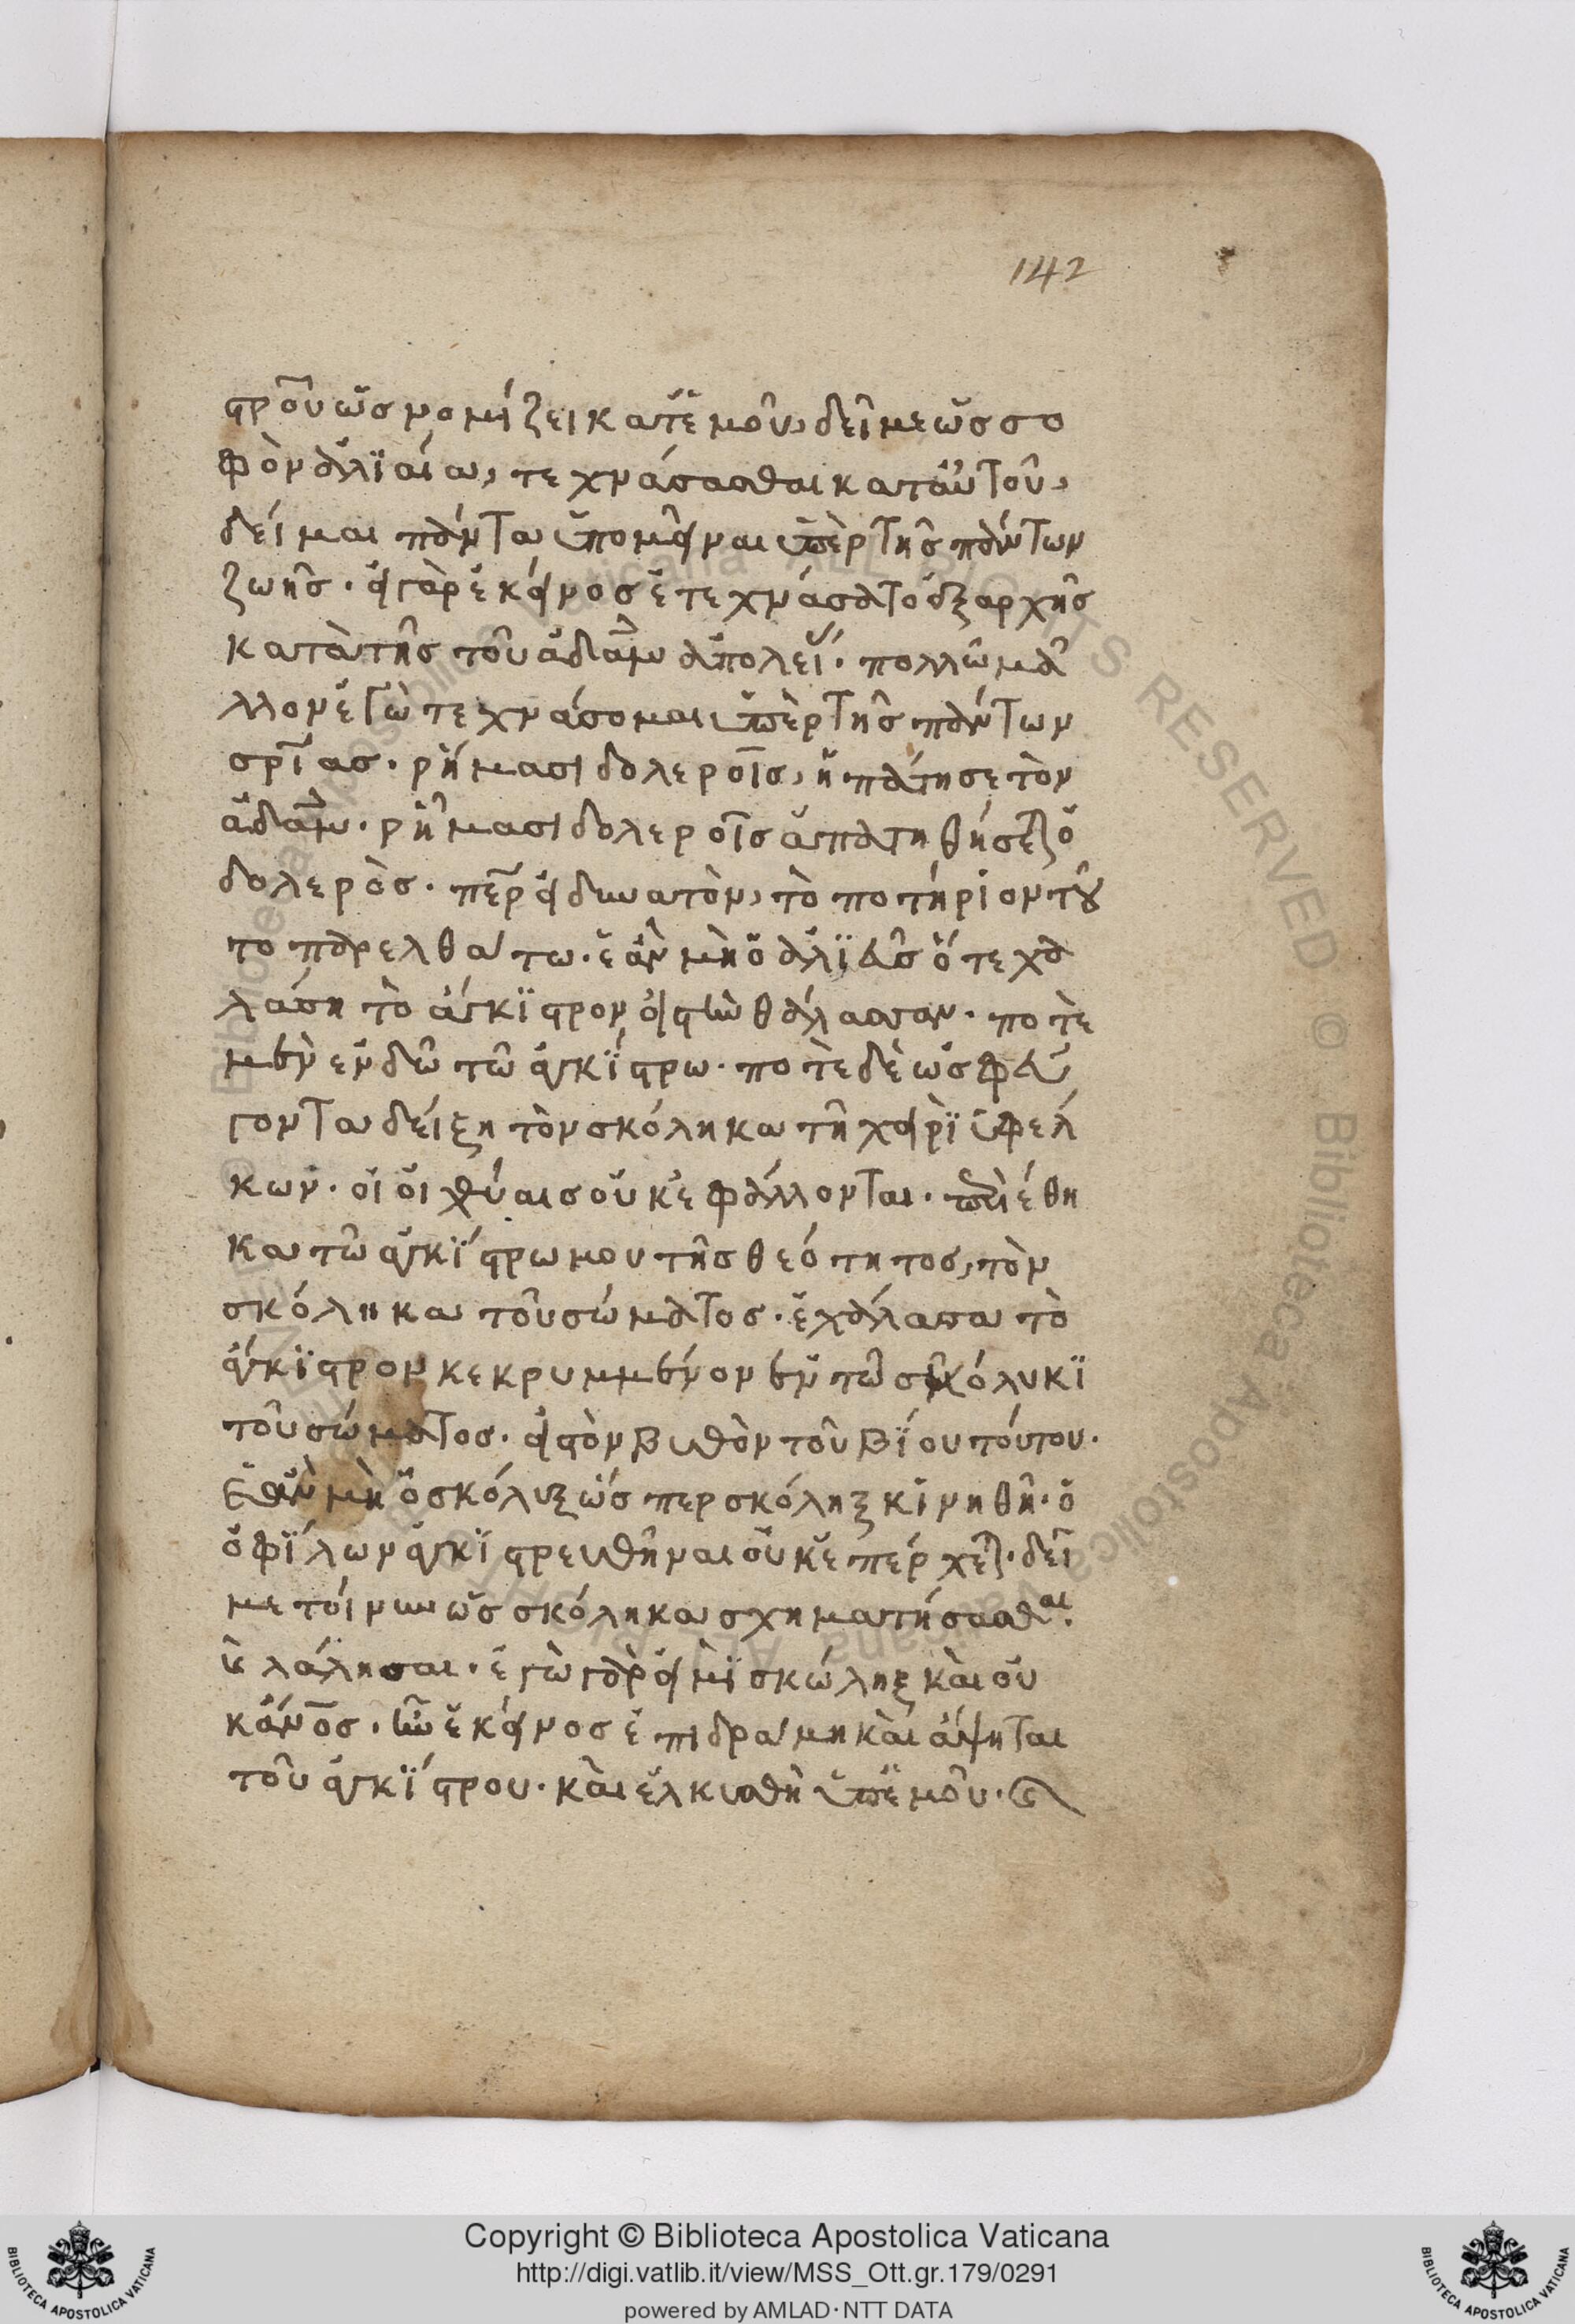 142
σ̅ρο̅υ ὡς νομίζει κατ' ἐμοῦ, δεῖ με ὡς σο
φὸν ἁλϊαία, τεχνάσασθαι κατ' αὐτοῦ,
δεί μαι πάντα ὑπομεῖναι ὑπὲρ τῆς πάντων
ζωῆς. εἰ γὰρ ἐκείνος ἐτεχνάσατο ἐξαρχῆς
κατὰ τῆς τοῦ ἀδὰμ ἀπολεί. πολλῶ μᾶ
λλον ἐγὼ τεχνάσομαι ὑπὲρ τῆς πάντων
σρ̅ίας. ρήμασι δολεροῖς, ἠπάτησε τὸν
ἀδὰμ. ρήμασι δολεροῖς ἀπατηθήσεται ὁ
δολερὸς. περ̅ εἰ δυνατὸν, τὸ ποτήριον τοῦ
το παρελθάτω. ἐὰν μὴ ὁ ἁλϊεῦς ὅτε χα
λάση τὸ ἄγκϊστρον εἰς τὴν θάλασσαν. ποτὲ
μὲν ενδῶ τῶ ἀγκΐστρω. ποτὲ δὲ ὡς φεύ
γοντα δείξη τὸν σκόληκα τῆ χειρὶ ὑφέλ
κων. οἱ οἰχθύαις οὐκ ἐφάλλονται. περιέθη
κα τῶ ἀγκΐστρω μου τῆς θεότητος, τὸν
σκόληκα τοῦ σώματος. ἐχάλασα τὸ
ἄγκϊστρον κεκρυμμένον ἐν τῶ σκόλυκϊ
τοῦ σώματος. εἰς τὸν βυθὸν τοῦ βΐου τούτου.
Ἐὰν μὴ ὁ σκόλυξ ὥσπερ σκόληξ κινηθῆ. ὁ
ὀφΐλων ἀγκϊστρευθῆναι οὐκ ἐπέρχεται. δεῖ
με τοίνυν ὡς σκόληκα σχηματήσασθαι.
κ̀ λάλησαι. ἐγὼ γὰρ εἰμὶ σκώληξ καὶ οὐ
κ ἀν̅ο̅ς. ἵν' ἐκείνος ἐπιδράμη καὶ ἅψηται
τοῦ ἀγκΐστρου. καὶ ἑλκυσθῆ ὑπ' ἐμοῦ.
Copyright © Biblioteca Apostolica Vaticana
http://digi.vatlib.it/view/MSS_Ott.gr.179/0291
powered by AMLAD·NTT DATA
BIBLIOTECA APOSTOLICA VATICANA
BIBLIOTECA APOSTOLICA VATICANA